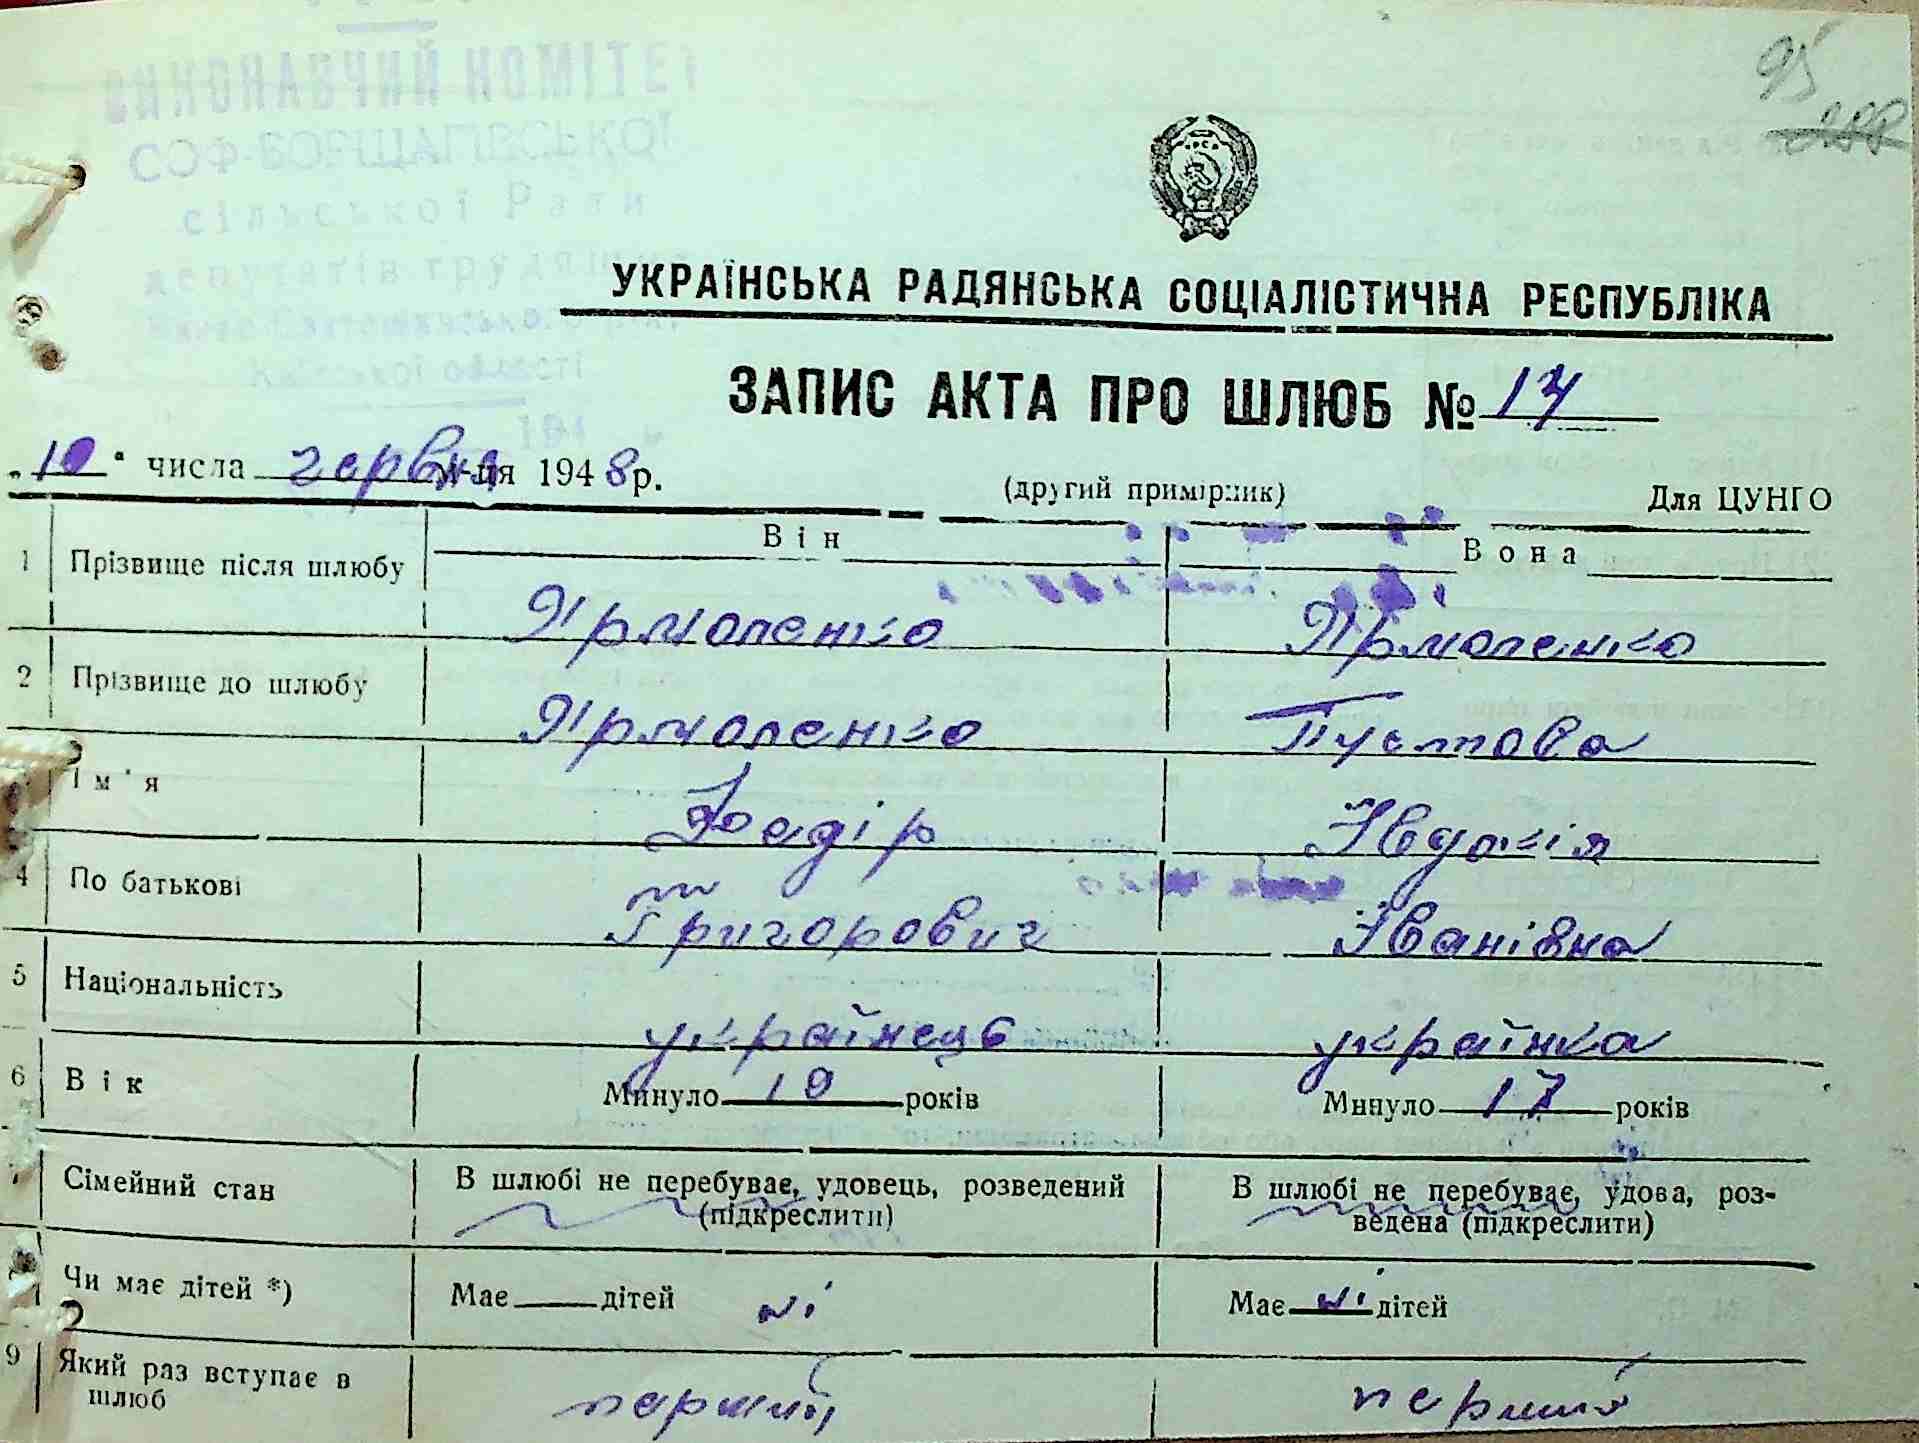 95
288
ВИКОНАВЧИЙ КОМІТЕТ
СОФ-БОРЩАГІВСЬКОЇ
сільської Ради
депутатів трудящих
Києво-Святошинського р-ну,
Київської області
194
УКРАЇНСЬКА РАДЯНСЬКА СОЦІАЛІСТИЧНА РЕСПУБЛІКА
ЗАПИС АКТА ПРО ШЛЮБ № 17
„10" числа червня м-ця 1948 р.
(другий примірник) Для ЦУНГО
Він Вона
1 Прізвище після шлюбу Ярмоленко Ярмоленко
2 Прізвище до шлюбу Ярмоленко Пустова
Ім'я Феодір Явдокія
4 По батькові Григорович Іванівна
5 Національність українець українка
6 Вік Минуло 19 років Минуло 17 років
Сімейний стан В шлюбі не перебуває, удовець, розведений (підкреслити) В шлюбі не перебуває, удова, роз-
ведена (підкреслити)
Чи має дітей *) Має дітей ні Має ні дітей
9 Який раз вступає в
шлюб перший перший